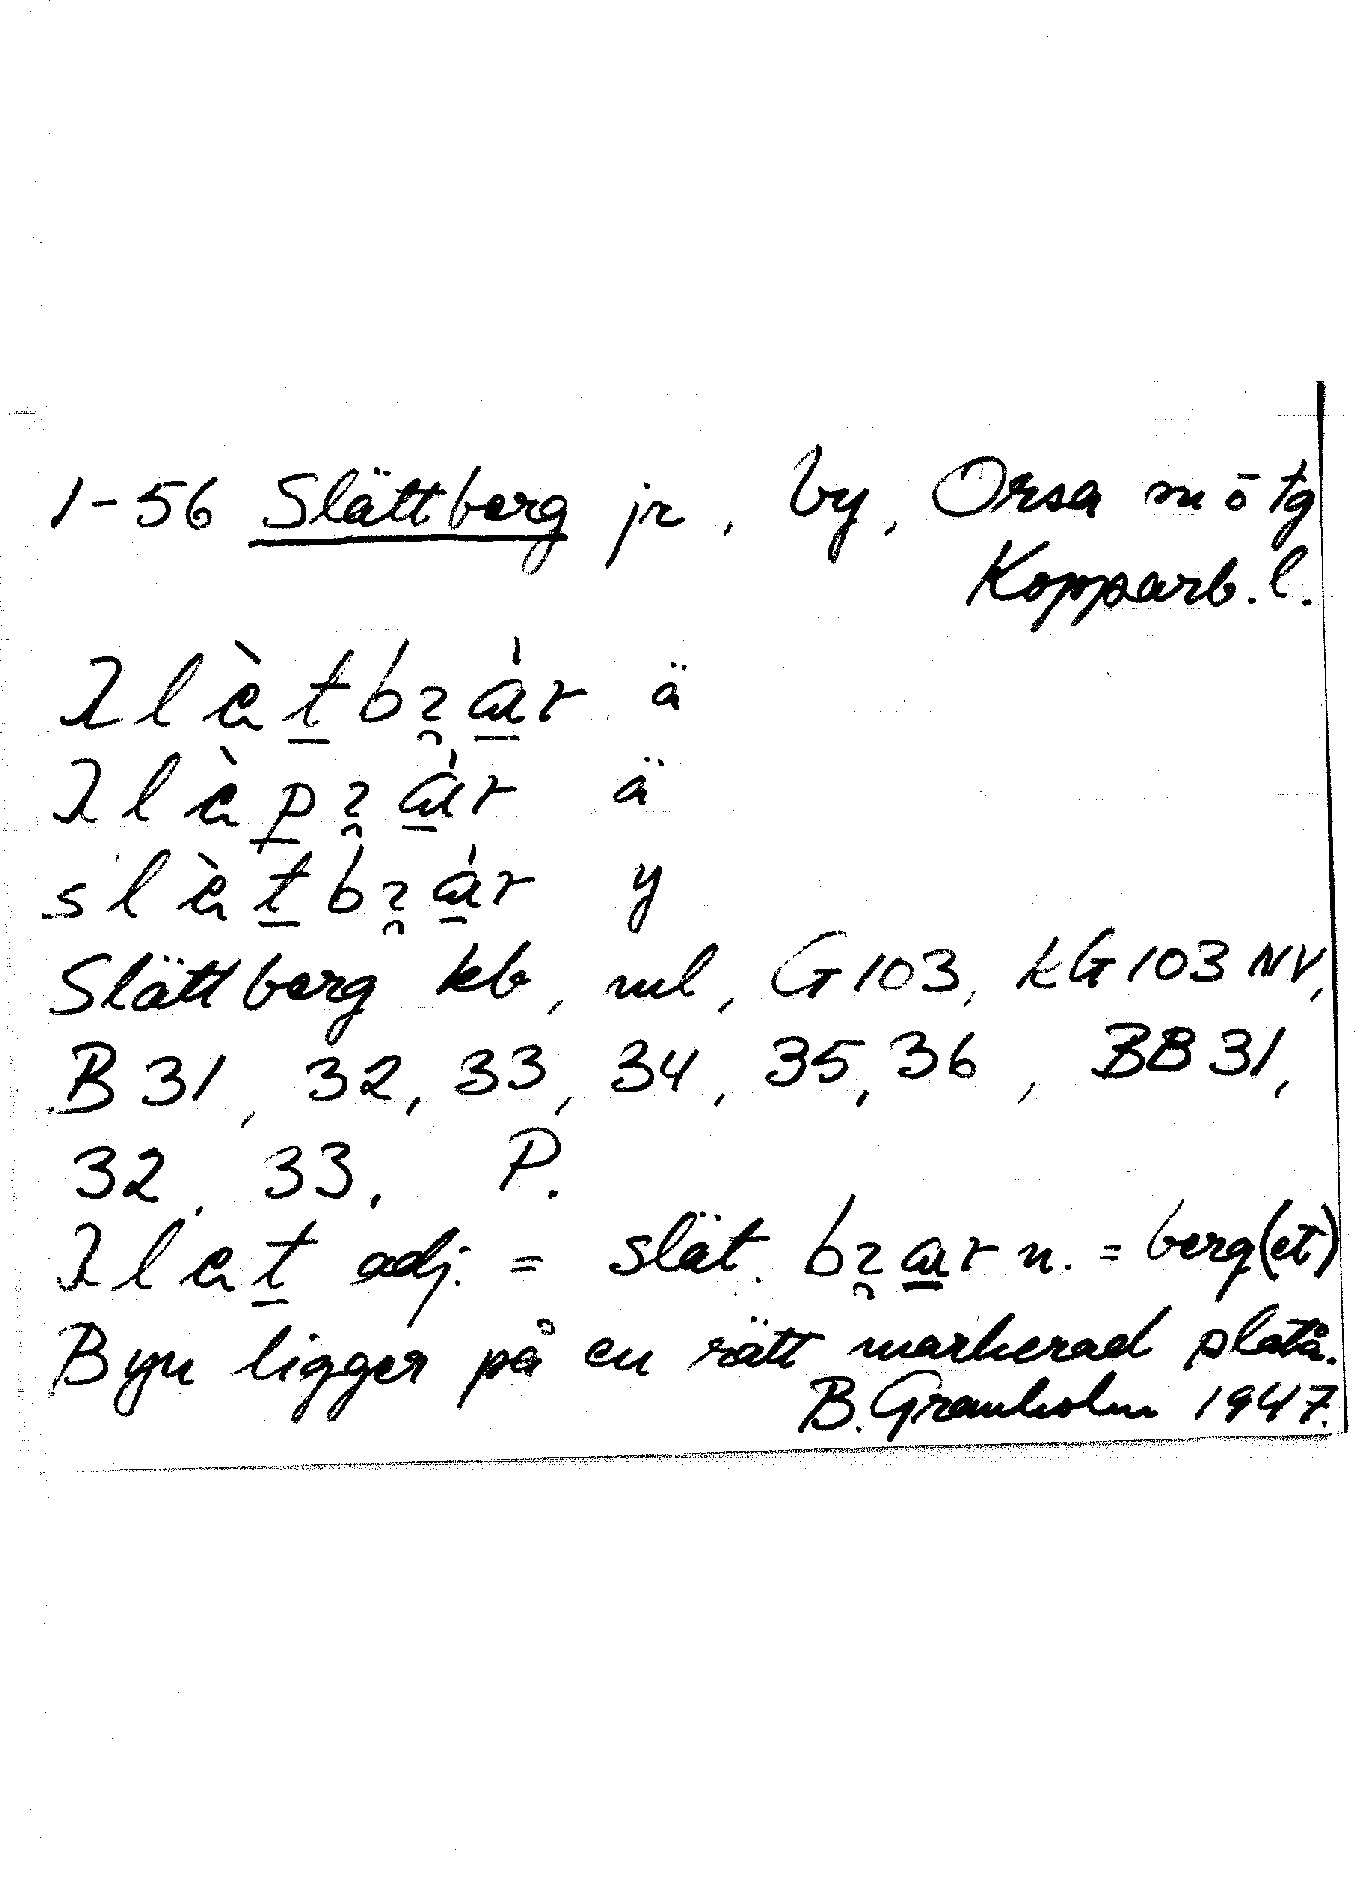 1-56 Slättberg jr, by, Orsa m ö tg
Kopparb. l.
ä
ä
y
Slättberg kb, ml, G103, kG103 NV,
B 31, 32, 33, 34, 35, 36, BB 31,
32, 33, P.
adj. = slät. n. = berg(et)
Byn ligger på en rätt markerad platå.
B. Granholm 1947.